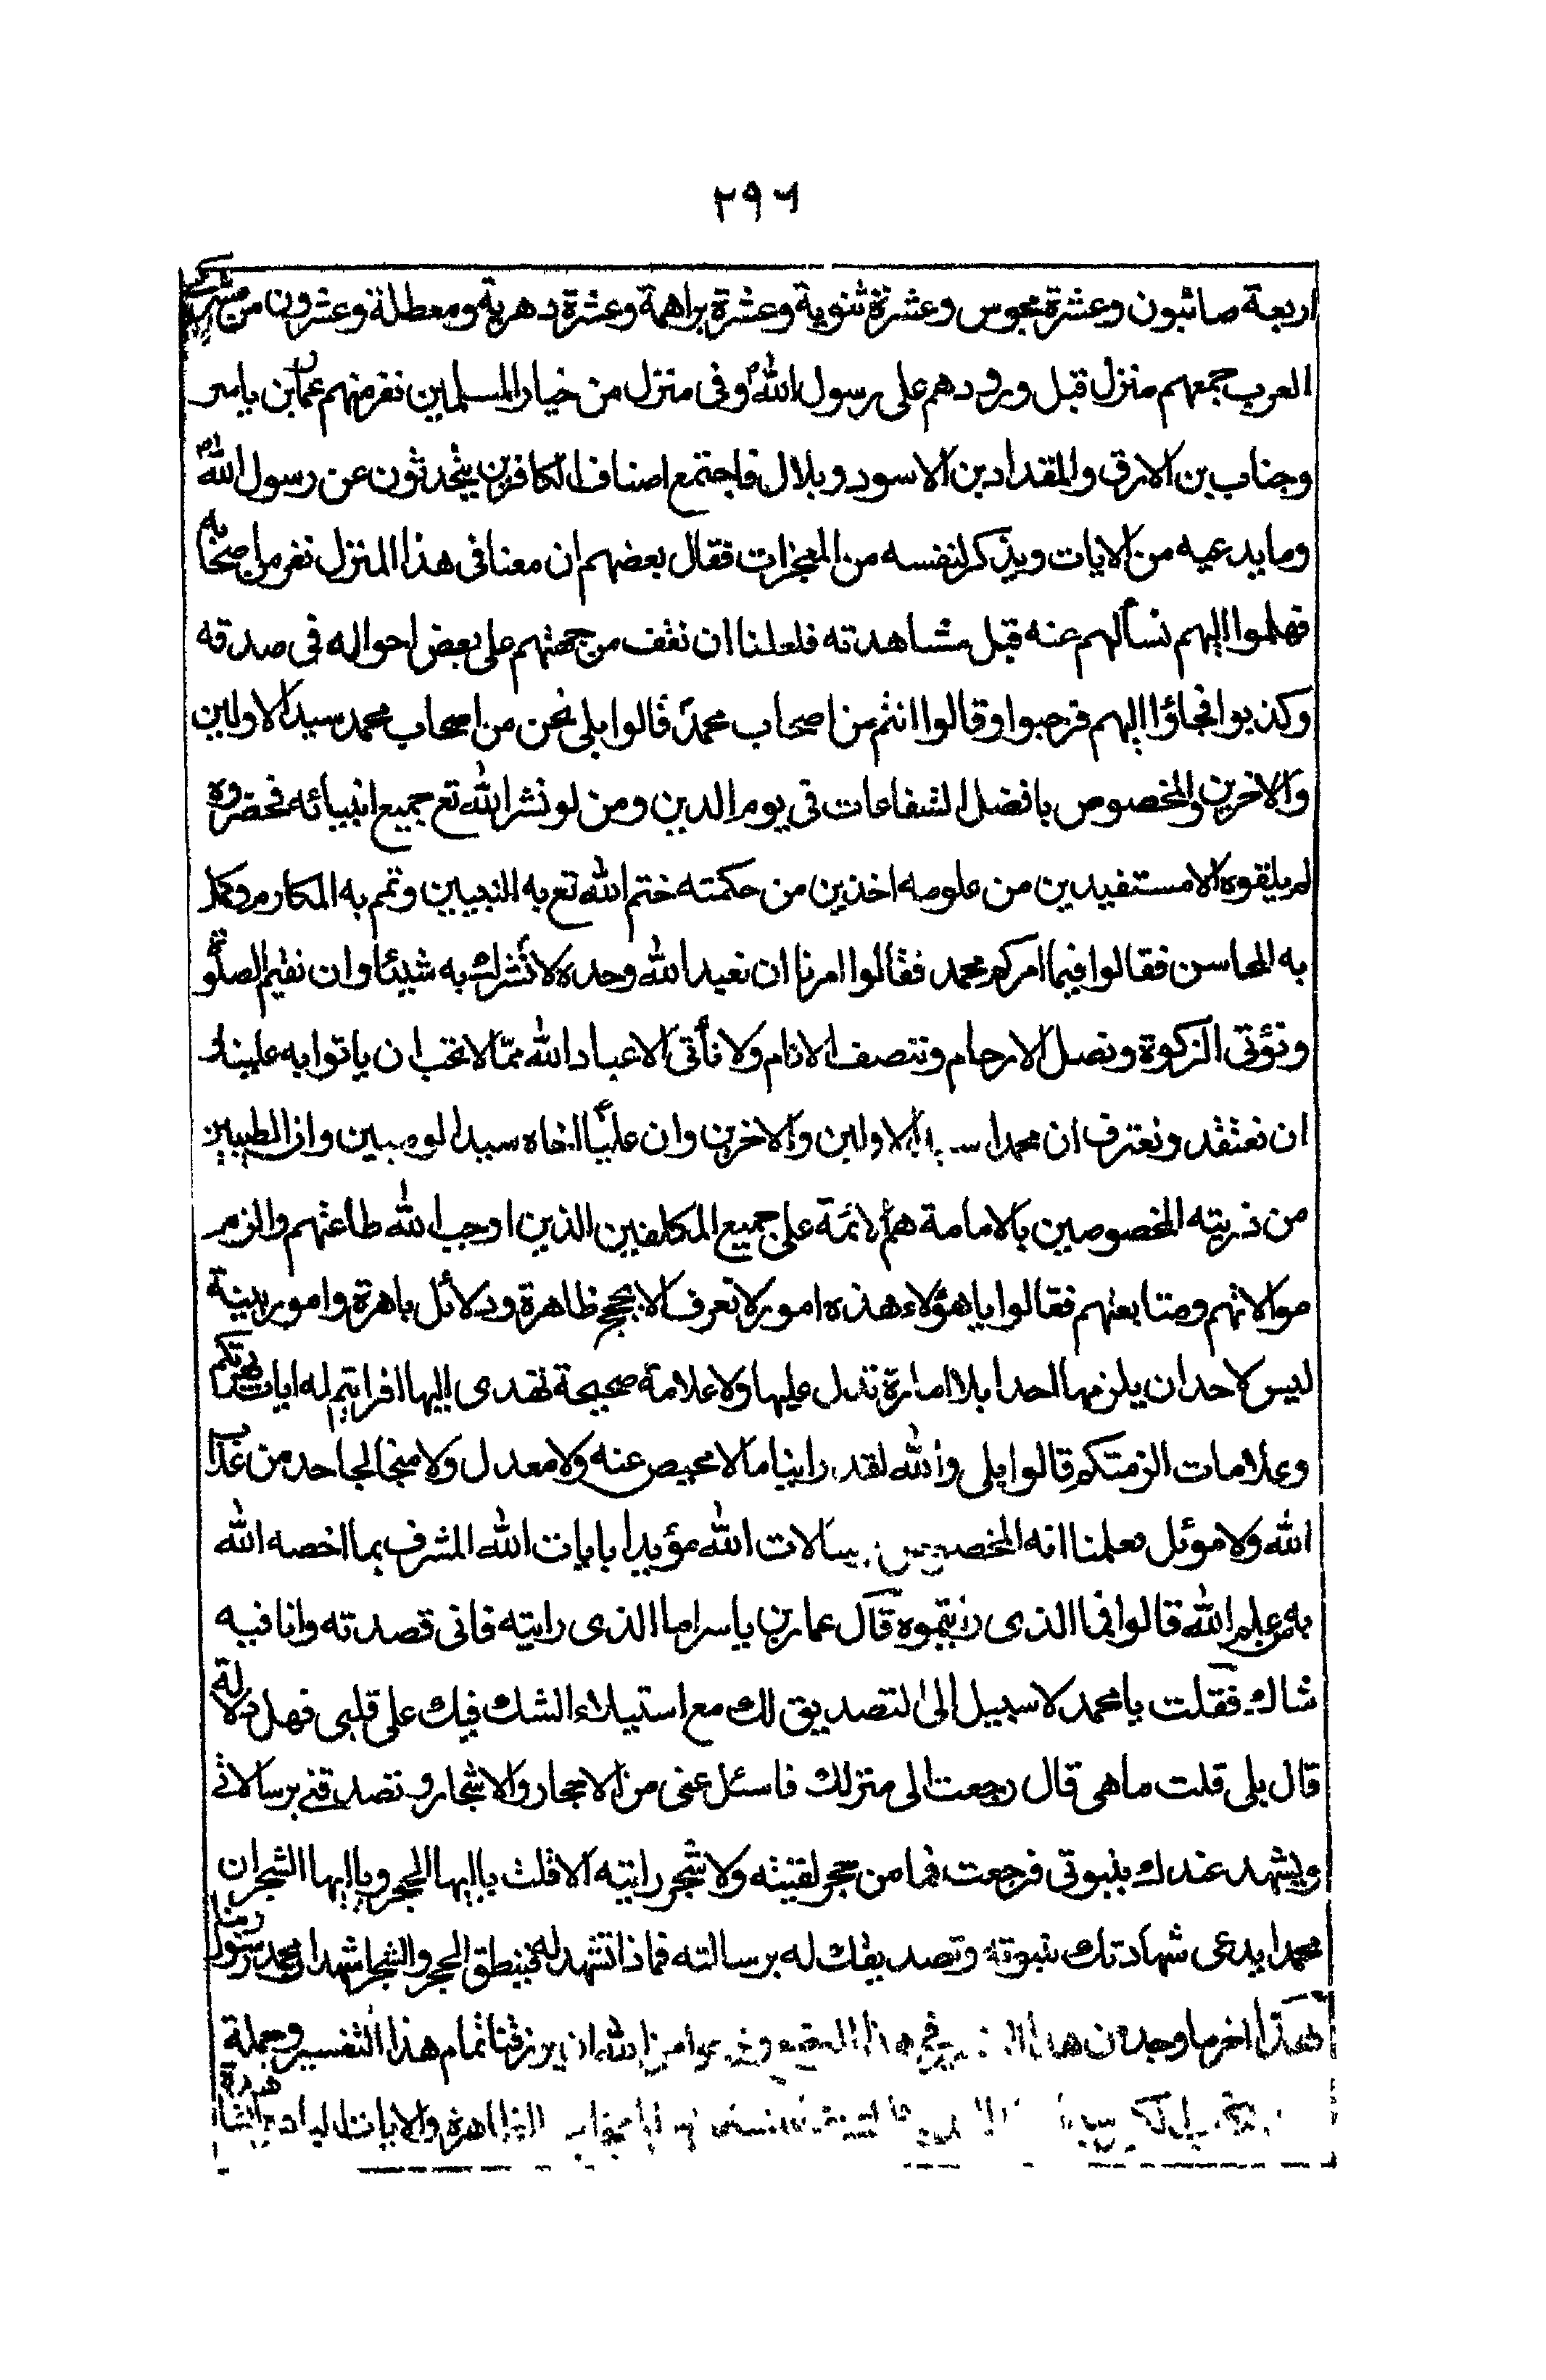 ٢٩٦
اربعة صائبون وعشرة مجوس وعشرة ثنوية وعشرة براهمة وعشرة دهرية ومعطلة وعشرون من مشركى
العرب جمعهم منزل قبل ورودهم على رسول الله ص وفى منزل من خيار المسلمين نفر منهم عمار بن ياسر
وخباب بن الارق والمقداد بن الاسود وبلال فاجتمع اصناف الكافرين يتحدثون عن رسول الله ص
وما يدعيه من الايات ويذكر لنفسه من المعجزات فقال بعضهم ان معنا فى هذا المنزل نفر من اصحابه
فهلموا اليهم نسألهم عنه قبل مشاهدته فلعلنا ان نقف من جهتهم على بعض احواله فى صدقه
وكذبه فجاؤا اليهم فرحبوا وقالوا انتم من اصحاب محمد قالوا بلى نحن من اصحاب محمد سيد الاولين
والاخرين والمخصوص بافضل الشفاعات فى يوم الدين ومن لو نشر الله تع جميع انبيائه فحضروه
لم يلقوه الا مستفيدين من علومه اخذين من حكمته ختم الله تع به النبيين وتمم به المكارم وكمل
به المحاسن فقالوا فيما امركم محمد فقالوا امرنا ان نعبد الله وحده لا نشرك به شيئا وان نقيم الصلوة
ونؤتى الزكوة ونصل الارحام وننصف الانام ولا نأتى الا عباد الله مما لا نحب ان ياتوا به علينا و
ان نعتقد ونعترف ان محمدا سيد الاولين والاخرين وان عليا ع اخاه سيد الوصيين وان الطيبين
من ذريته المخصوصين بالامامة هم الائمة على جميع المكلفين الذين اوجب الله طاعتهم والزم
موالاتهم ومتابعتهم فقالوا يا هؤلاء هذه امور لا تعرف الا بحجج ظاهرة ودلائل باهرة وامور بينة
ليس لاحد ان يلزمها احدا بلا امارة تدل عليها ولا علامة صحيحة تهدى اليها افرايتم له ايات بهرتكم
وعلامات الزمتكم قالوا بلى والله لقد راينا ما لا محيص عنه ولا معدل ولا منجا لجاحد من عذاب
الله ولا موئل فعلمنا انه المخصوص برسالات الله مؤيدا بايات الله المشرف بما اخصه الله
به من علم الله قالوا فما الذى رايتموه قال عمار بن ياسر اما الذى رايته فانى قصدته وانا فيه
شاك فقلت يا محمد لا سبيل الى التصديق لك مع استيلاء الشك فيك على قلبى فهل دلالة
قال بلى قلت ما هى قال رجعت الى منزلك فاسئل عنى من الاحجار والاشجار و تصدقنى برسالاتى
ويشهد عندك بنبوتى فرجعت فما من حجر لقيته ولا شجر رايته الا قلت يا ايها الحجر ويا ايها الشجر ان
محمدا يدعى شهادتك بنبوته وتصديقك له برسالته فماذا تشهد له فينطق الحجر والشجر اشهد ان محمد رسول ربنا
هذا اخر ما وجد من هذا التفسير الله ان يرزقنا تمام هذا التفسير وجملة
الظاهرة والايات